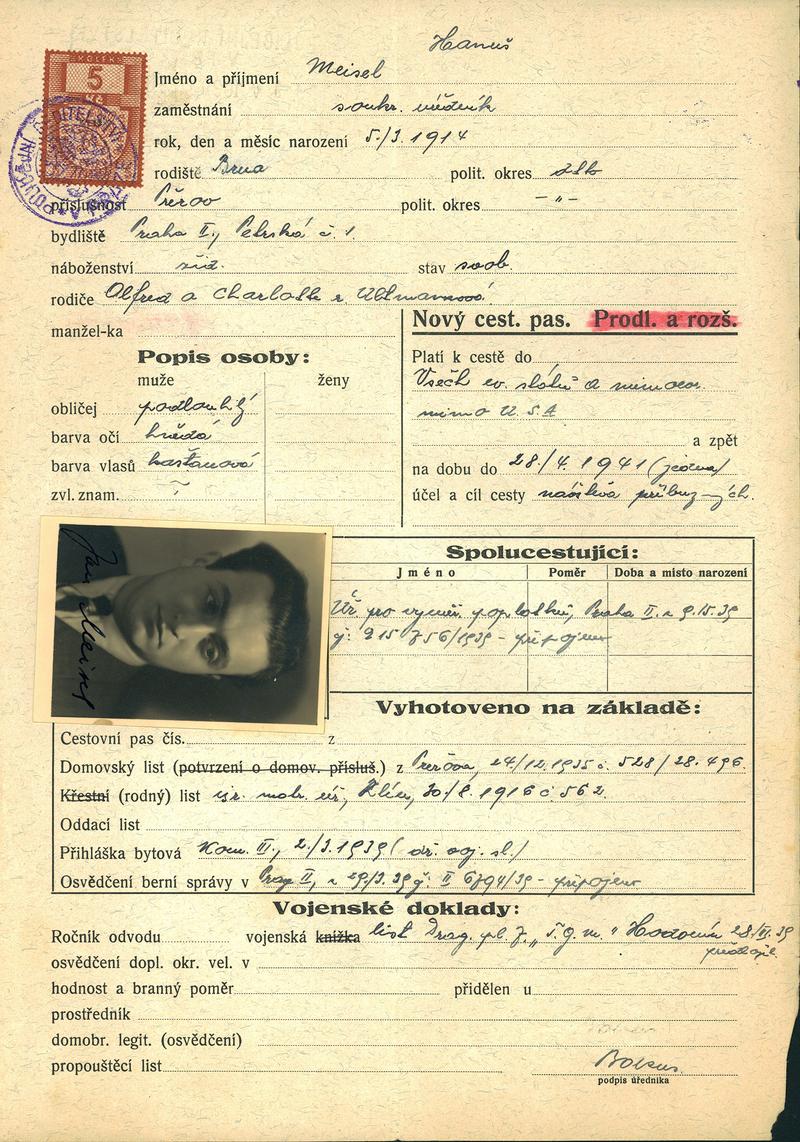 Hanuš
Jméno a příjmení Meisel
zaměstnání soukr. úředník
rok, den a měsíc narození 5./3. 1914
rodiště Brna polit. okres zde
příslušnost Přerov polit. okres — " —
bydliště Praha II., Petrská č. 1.
náboženství žid. stav svob.
rodiče Alfred a Charlotte r. Ultmannová
manžel-ka
Nový cest. pas. Prodl. a rozš.
Popis osoby:
muže ženy
obličej podlouhlý
barva očí hnědá
barva vlasů kaštanová
zvl. znam.
Platí k cestě do
Všech ev. států a mimoev.
mimo U.S.A
a zpět
na dobu do 28./4. 1941 (jedna)
účel a cíl cesty návštěva příbuzných.
5
KOLEK
POLICEJNÍ ŘEDITELSTVÍ
Jan Meisel
Spolucestující:
Jméno Poměr Doba a místo narození
Úř. pro vyměř. poplatků, Praha II. z 9.15.39
j: 215756/1939 - připojeno
Vyhotoveno na základě:
Cestovní pas čís. z
Domovský list (potvrzení o domov. přísluš.) z Přerova, 24/12.1935 č. 528/28.496.
Křestní (rodný) list isr. matr. úř., 30/8. 1916 č 562.
Oddací list
Přihláška bytová Kom. III., 2./3. 1939
Osvědčení berní správy v Prag II, z 29/3. 39 j: II 6794/39 - připojeno
Vojenské doklady:
Ročník odvodu vojenská knížka list Drag. pl. 7. „T. G. M." Hodonín 28/III. 39
předlož.
osvědčení dopl. okr. vel. v
hodnost a branný poměr přidělen u
prostředník
domobr. legit. (osvědčení)
propouštěcí list
podpis úředníka